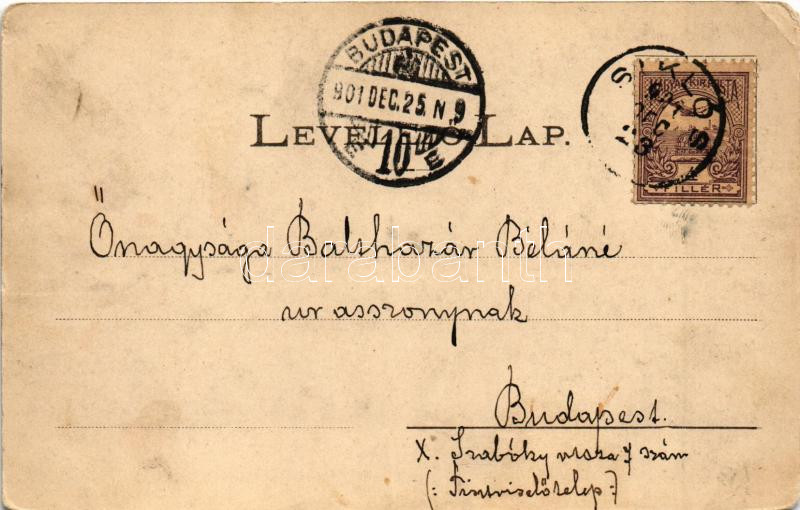 BUDAPEST
901 DEC. 25. N 9
10
SIKLÓS
LEVELEZŐ LAP.
FILLÉR
Őnagysága Balthazár Béláné
darabanth
úr asszonynak
Budapest.
X. Szabóky utcza 7 szám
(: Tisztviselőtelep :)